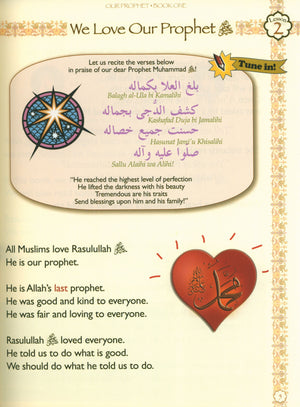 OUR PROPHET • BOOK ONE
Lesson
2
We Love Our Prophet ﷺ
Tune in!
Let us recite the verses below
in praise of our dear Prophet Muhammad ﷺ!
بلغ العلا بكماله
Balagh al-Ula bi Kamalihi
كشف الدجى بجماله
Kashafad Duja bi Jamalihi
حسنت جميع خصاله
Hasunat Jami'u Khisalihi
صلوا عليه وآله
Sallu Alaihi wa Alihi!
"He reached the highest level of perfection
He lifted the darkness with his beauty
Tremendous are his traits
Send blessings upon him and his family!"
All Muslims love Rasulullah ﷺ.
He is our prophet.
He is Allah's last prophet.
He was good and kind to everyone.
He was fair and loving to everyone.
محمد
Rasulullah ﷺ loved everyone.
He told us to do what is good.
We should do what he told us to do.